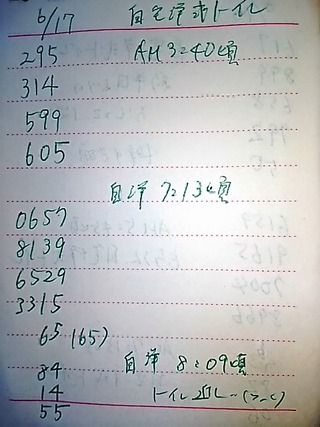 6/17 自宅洋式トイレ
295 AM3:40頃
314
599
605
自洋 7:13頃
0657
8139
6529
3315
65(65)
自洋 8:09頃
84
14 トイレ
55